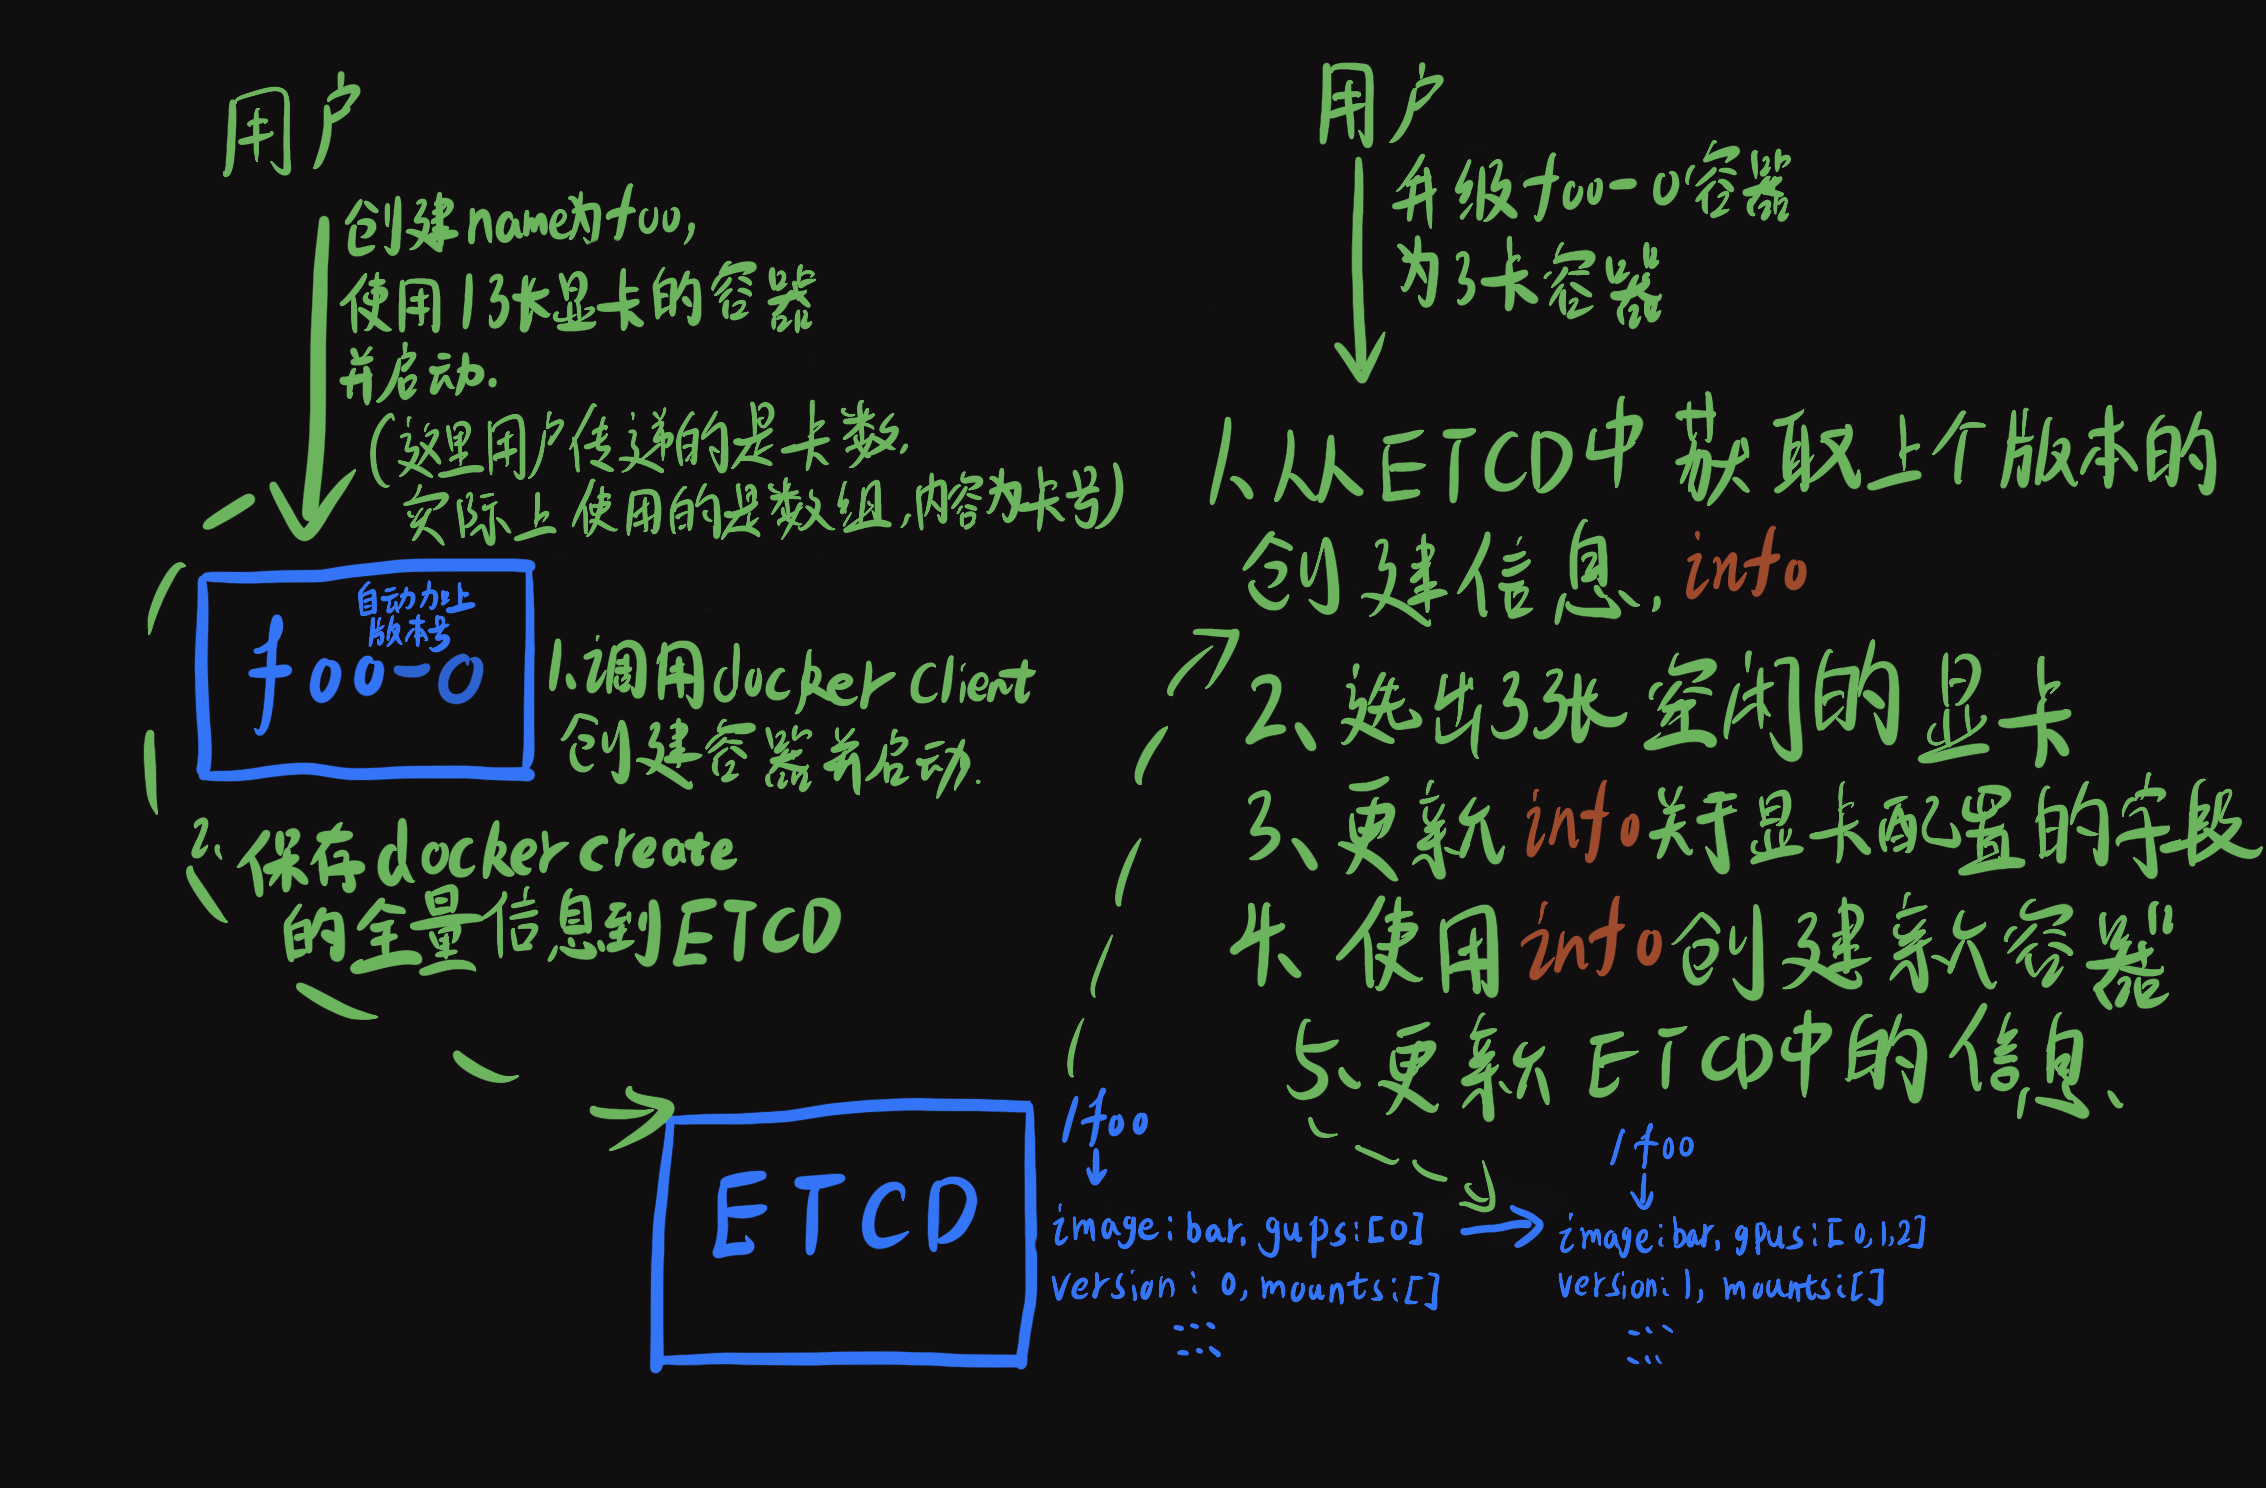 用户
创建name为foo,
使用1张显卡的容器
并启动.
(这里用户传递的是卡数,
实际上使用的是数组,内容为卡号)
自动加上
版本号
foo-0
1、调用docker client
创建容器并启动.
2、保存docker create
的全量信息到ETCD
ETCD
/foo
image:bar, gups:[0]
version: 0, mounts:[]
用户
升级foo-0容器
为3卡容器
1、从ETCD中获取上个版本的
创建信息, info
2、选出3张空闭的显卡
3、更新info关于显卡配置的字段
4、使用info创建新容器
5、更新ETCD中的信息、
/foo
image:bar, gpus:[0,1,2]
version: 1, mounts:[]